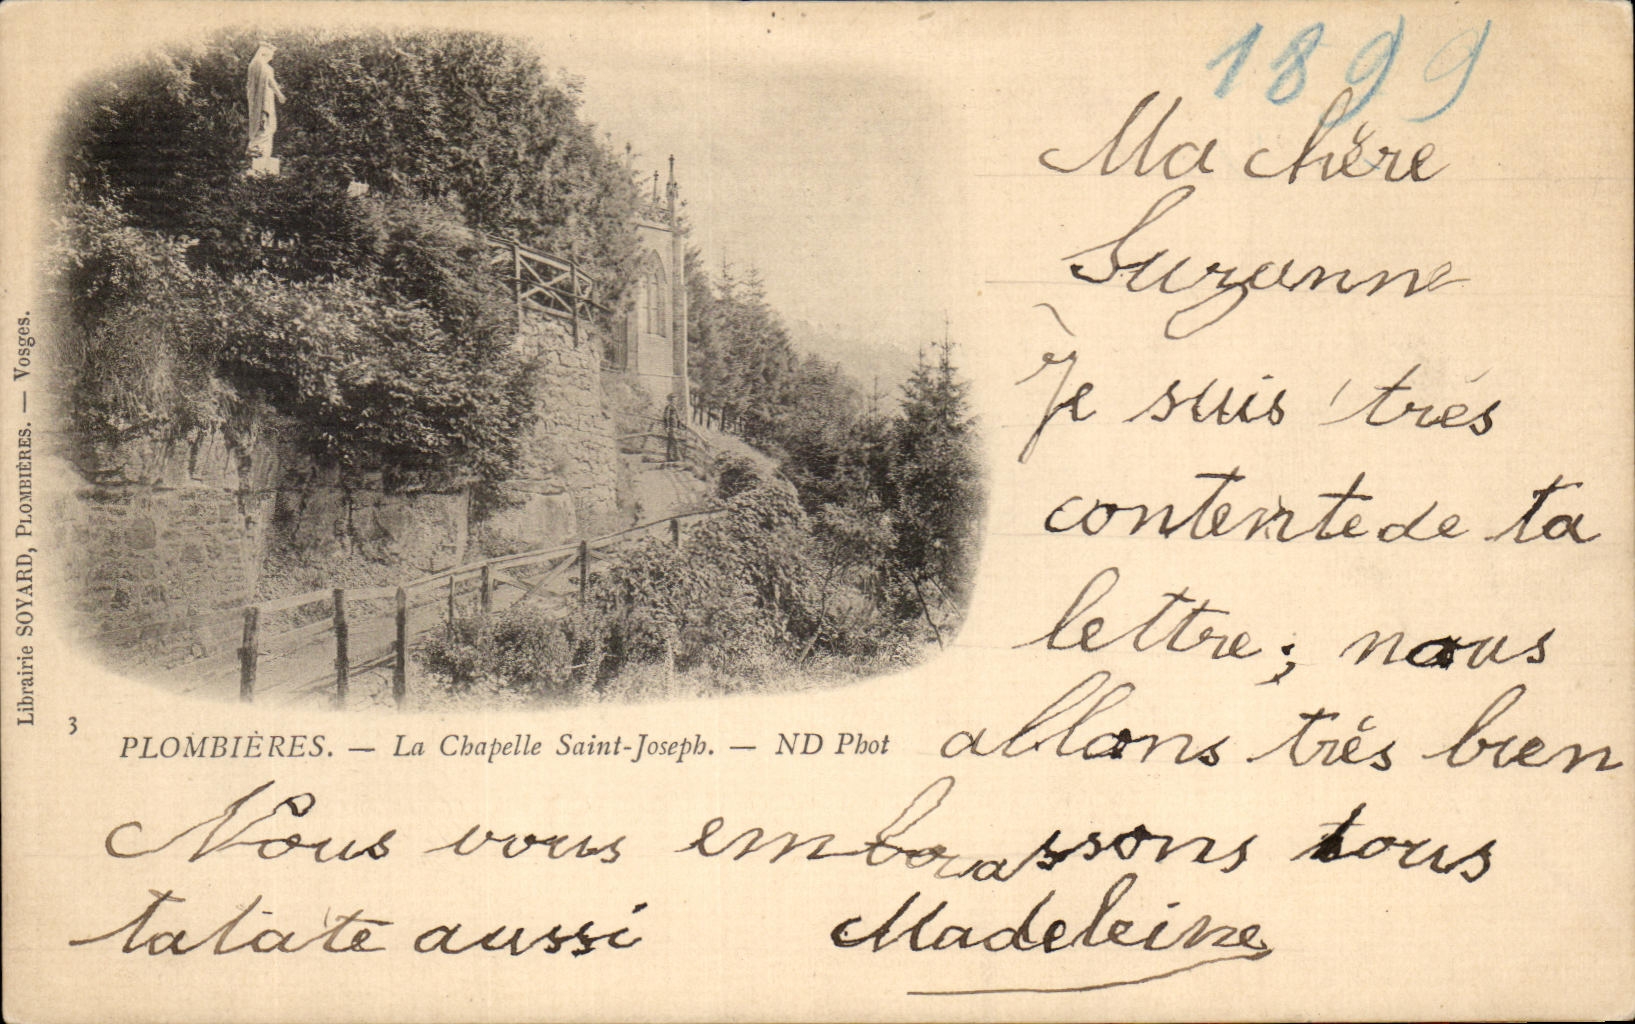 1899
Ma chère
Suzanne
Je suis très
contente de ta
lettre; nous
allons très bien
Nous vous embrassons tous
aussi Madeleine
3
PLOMBIÈRES. — La Chapelle Saint-Joseph. — ND Phot
Librairie SOYARD, PLOMBIÈRES. — Vosges.